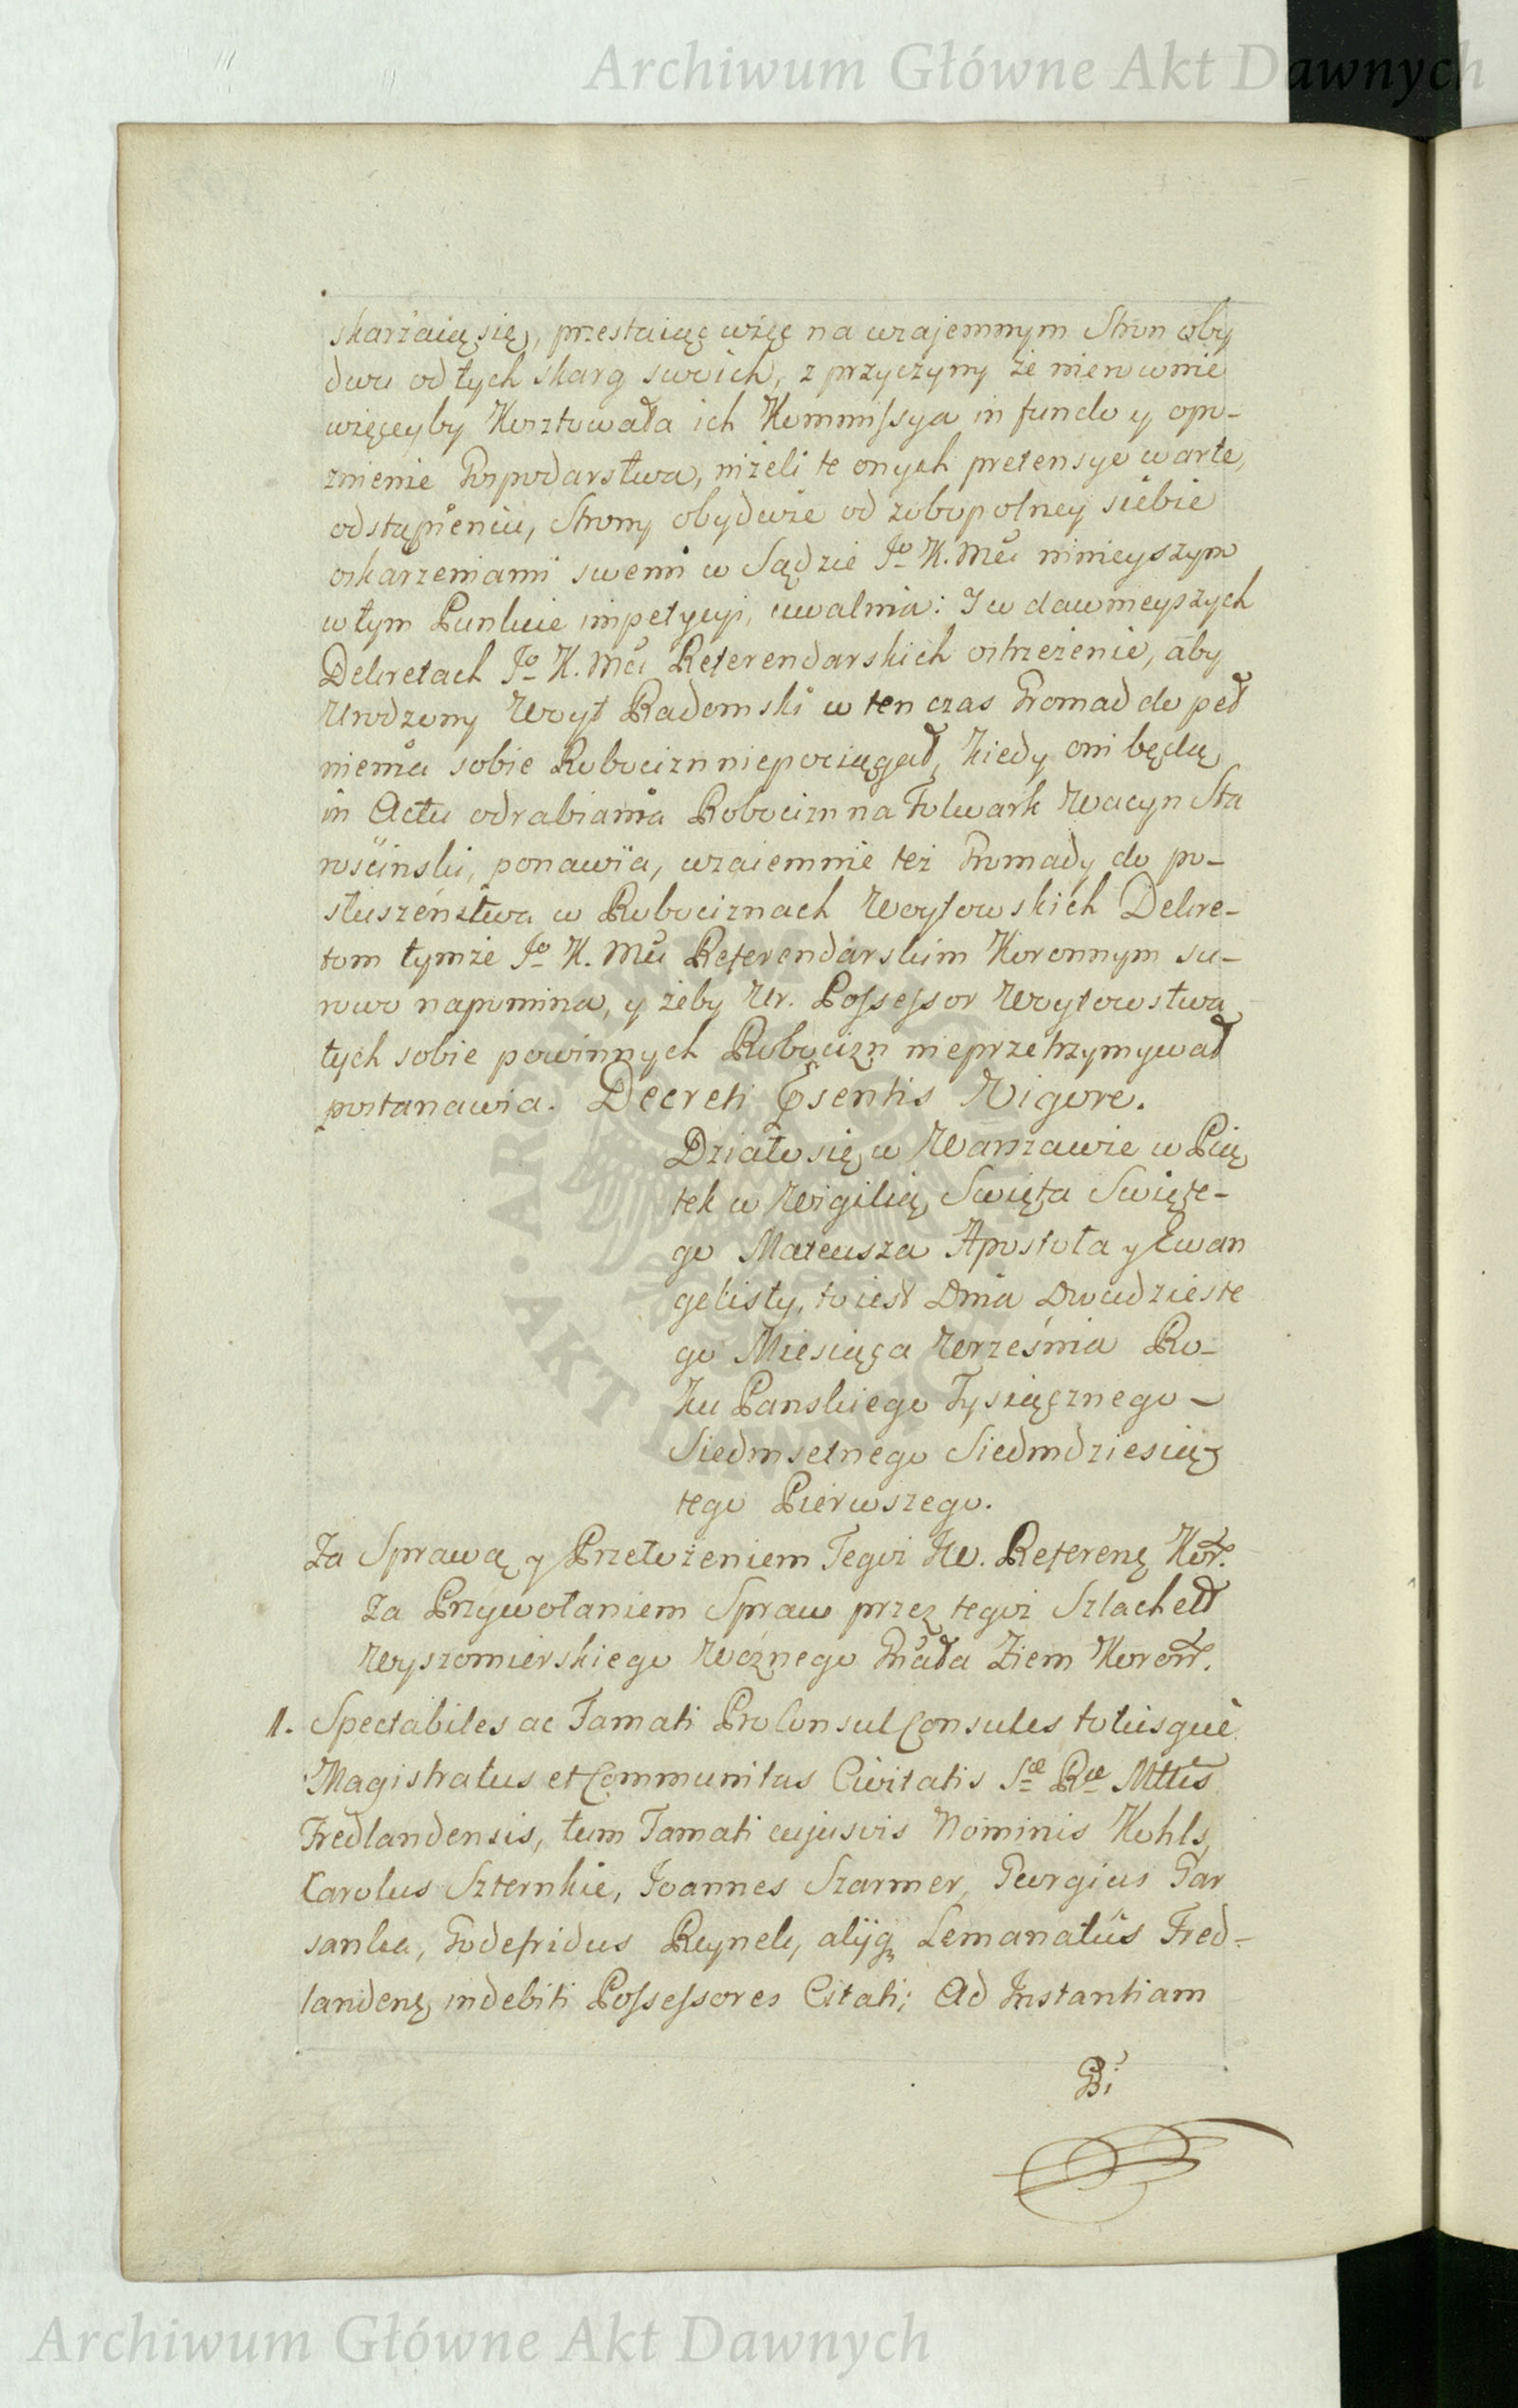 Archiwum Główne Akt Dawnych
skarżaią się, przestaiąc więc na wzajemnym Stron oby
dwu od tych skarg swoich, z przyczyny że nierownie
więceyby Kosztowała ich Kommissya in fundo y opo-
znienie Gospodarstwa, niżeli te onych pretensye warte,
odstąpieniu, Strony obydwie od zobopolney siebie
oskarzeniami swemi w Sądzie Jo K. Mci ninieyszym
w tym Punkcie impetycyi, uwalnia: J w dawnieyszych
Dekretach Jo K. Mci Referendarskich ostrzeżenie, aby
Urodzony Woyt Radomski w ten czas Gromad do peł
nienia sobie Robocizn niepociągał, kiedy oni będą
in Actu odrabiania Robocizn na Folwark Wacyn Sta
rościnski, ponawia, wzaiemnie też Gromady do po-
słuszeństwa w Robociznach Woytowskich Dekre-
tom tymże Jo K. Mci Referendarskim Koronnym su-
rowo napomina, y żeby Ur. Possessor Woytowstwa
tych sobie powinnych Robocizn nieprzetrzymywał
postanawia. Decreti Psentis Vigore.
Działo się w Warszawie w Pią
tek w Wigilią Swięta Swięte-
go Mateusza Apostoła y Ewan
gelisty, to iest Dnia Dwudzieste
go Miesiąca Września Ro-
ku Panskiego Tysiącznego-
Siedmsetnego Siedmdziesią
tego Pierwszego.
Za Sprawą y Przełożeniem Tegoż JW. Referenę Kor.
Za Przywołaniem Spraw przez tegoż Szlachett
Wyszomierskiego Woznego Gnała Ziem Koronn.
1. Spectabiles ac Famati ProConsul Consules totusque
Magistratus et Communitas Civitatis Sæ Ræ Mttis
Fredlandensis, tum Famati cujusvis Nominis Kohls,
Carolus Szternkie, Joannes Szarmer, Georgius Gar
sanka, Godefridus Reynek, alijq Lemanatûs Fred-
landenę indebiti Possessores Citati; Ad Instantiam
G:
ARCHIWUM
AKT DAWNYCH
Archiwum Główne Akt Dawnych